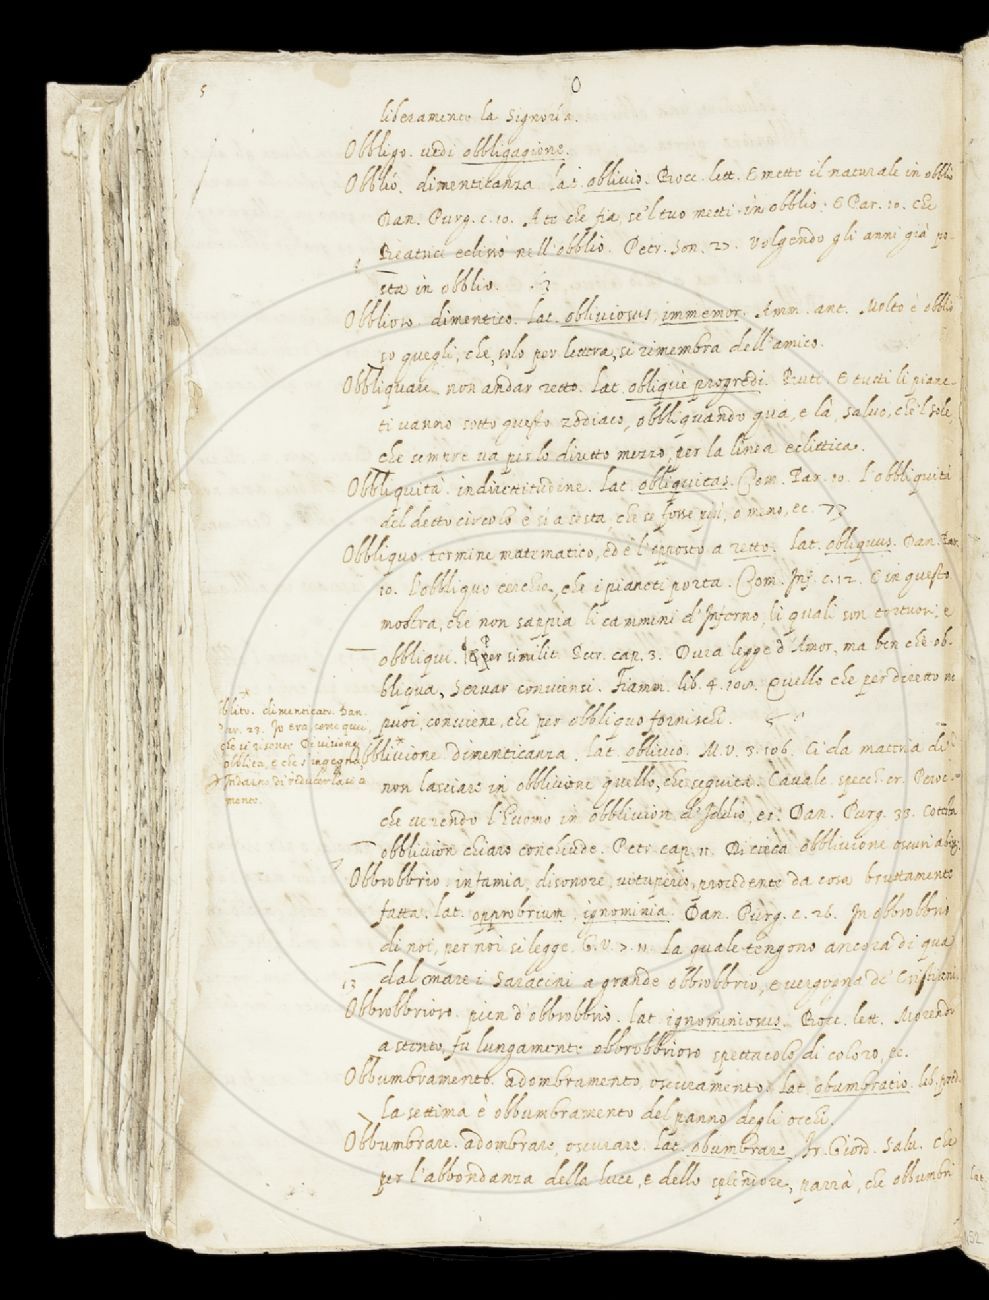 5
O
liberamente la Signoría.
Obbligo. vedi obbligagione.
Obblío. dimenticanza. lat. oblivio. Bocc. lett. E mette il naturale in obblio
Dan. Purg. c. 10. A te che fia, se'l tuo metti in obblio. E Par. 10. che
Beatrice eclissò nell'obblio. Petr. Son. 27. Volgendo gli anni già po-
sta in obblio.
Obblioso. dimentico. Lat. obliviosus, immemor. Amm. ant. Molto è obblio
so quegli, che solo per lettera, si rimembra dell'amico.
Obbliquare. non andar retto. Lat. obliquè progredi. But. E tutti li piane-
ti vanno sotto questo zodiaco, obbliquando quà, e là, salvo, che'l sole,
che sempre va per lo diritto mezzo, per la linea eclittica.
Obbliquità. indirettitudine. Lat. obliquitas. Com. Par. 10. L'obbliquità
del detto circolo è sì a sesta, che se fosse più, o meno, ec.
Obbliquo. termine matematico, ed è l'opposto a retto. Lat. obliquus. Dan. Par.
10. L'obbliquo cerchio, che i pianeti porta. Com. Inf. c. 12. E in questo
mostra, che non sappia li cammini d'Inferno, li quali son tortuosi, e
obbliqui. Per similit. Petr. cap. 3. Dura legge d'Amor, ma ben che ob-
bliqua, Servar conviensi. Fiamm. lib. 4. Quello che per diretto n
puoi, conviene, che per obbliquo fornischi.
Obblito. dimenticato. Dan.
Par. 23. Io era, come quei,
che si risente Di visione
obblita, e che s'ingegna
Indarno di ridurlasi a
mente.
Obblivione. dimenticanza. Lat. oblivio. M. V. 3. 106. Ci dà materia di
non lasciare in obblivione quello, che seguita. Cavalc. specc. cr.
che venendo l'huomo in obblivion d'Iddio, ec. Dan. Purg. 33. Cotesta
obblivion chiaro conchiude. Petr. cap. 11. Di cieca obblivione oscuri abissi.
Obbrobbrio. infamia, disonore, vituperio, procedente da cosa bruttamente
fatta. lat. opprobrium, ignominia. Dan. Purg. c. 26. In obbrobbrio
di noi, per noi si legge. G. V. 7. 11. La quale tengono ancora di qua
dal mare i Saracini a grande obbrobbrio, e vergogna de' Cristiani.
13
Obbrobbrioso. pien d'obbrobbrio. lat. ignominiosus. Bocc. lett. Morendo
a stento, fu lungamente obbrobbrioso spettacolo di coloro, ec.
Obbumbramento. adombramento, oscuramento. Lat. obumbratio. lib.
La settima è obbumbramento del panno degli occhi.
Obbumbrare. adombrare, oscurare. Lat. obumbrare. Fr. Giord. Salv. che
per l'abbondanza della luce, e dello splendore, parrà, che obbumbri
152